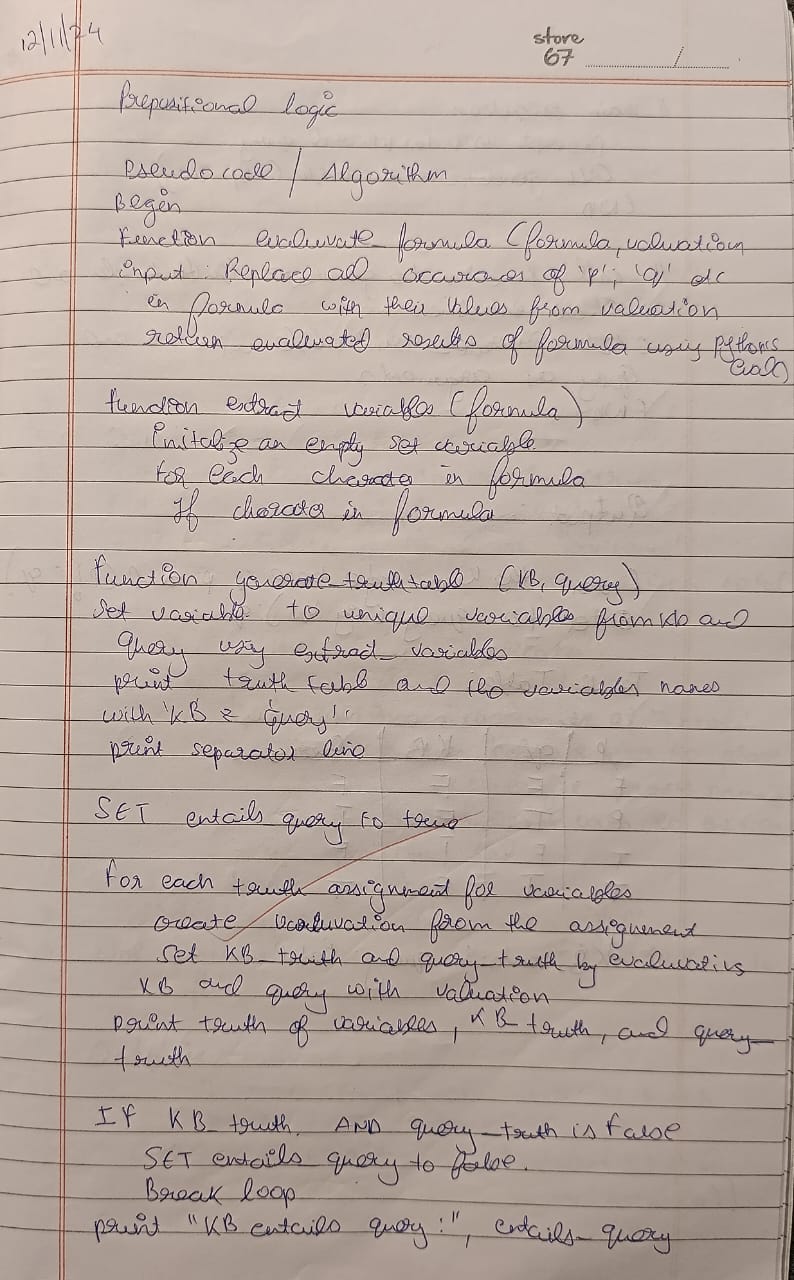 12/11/24
store
67
Prepositional logic
Pseudo code / Algorithm
Begin
Function evaluvate_formula (formula, valuation
input : Replace all occurances of 'p', 'q' etc
in formula with their values from valuation
return evaluvated results of formula using Pythons
eval()
function extract variables (formula)
initalize an empty set variable
For each character in formula
If character in formula
function generate_truthtable (KB, query)
Set variable to unique variables from kb and
query using extract_variables
print truth table and the variables names
with 'KB & query'
print separator line
SET entails query to true
For each truth assignment for variables
create valuvation from the assignement
Set KB_truth and query_truth by evaluvating
KB and query with valuation
print truth of variables, KB_truth, and query_
truth
If KB_truth AND query_truth is false
SET entails query to false.
Break loop
print "KB entails query:", entails_query